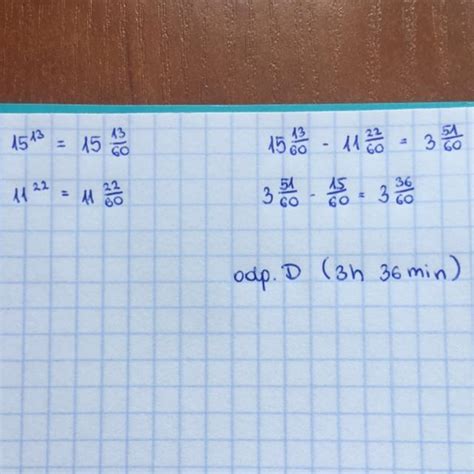 15¹³ = 15 13/60
11²² = 11 22/60
15 13/60 - 11 22/60 = 3 51/60
3 51/60 - 15/60 = 3 36/60
odp. D (3h 36min)